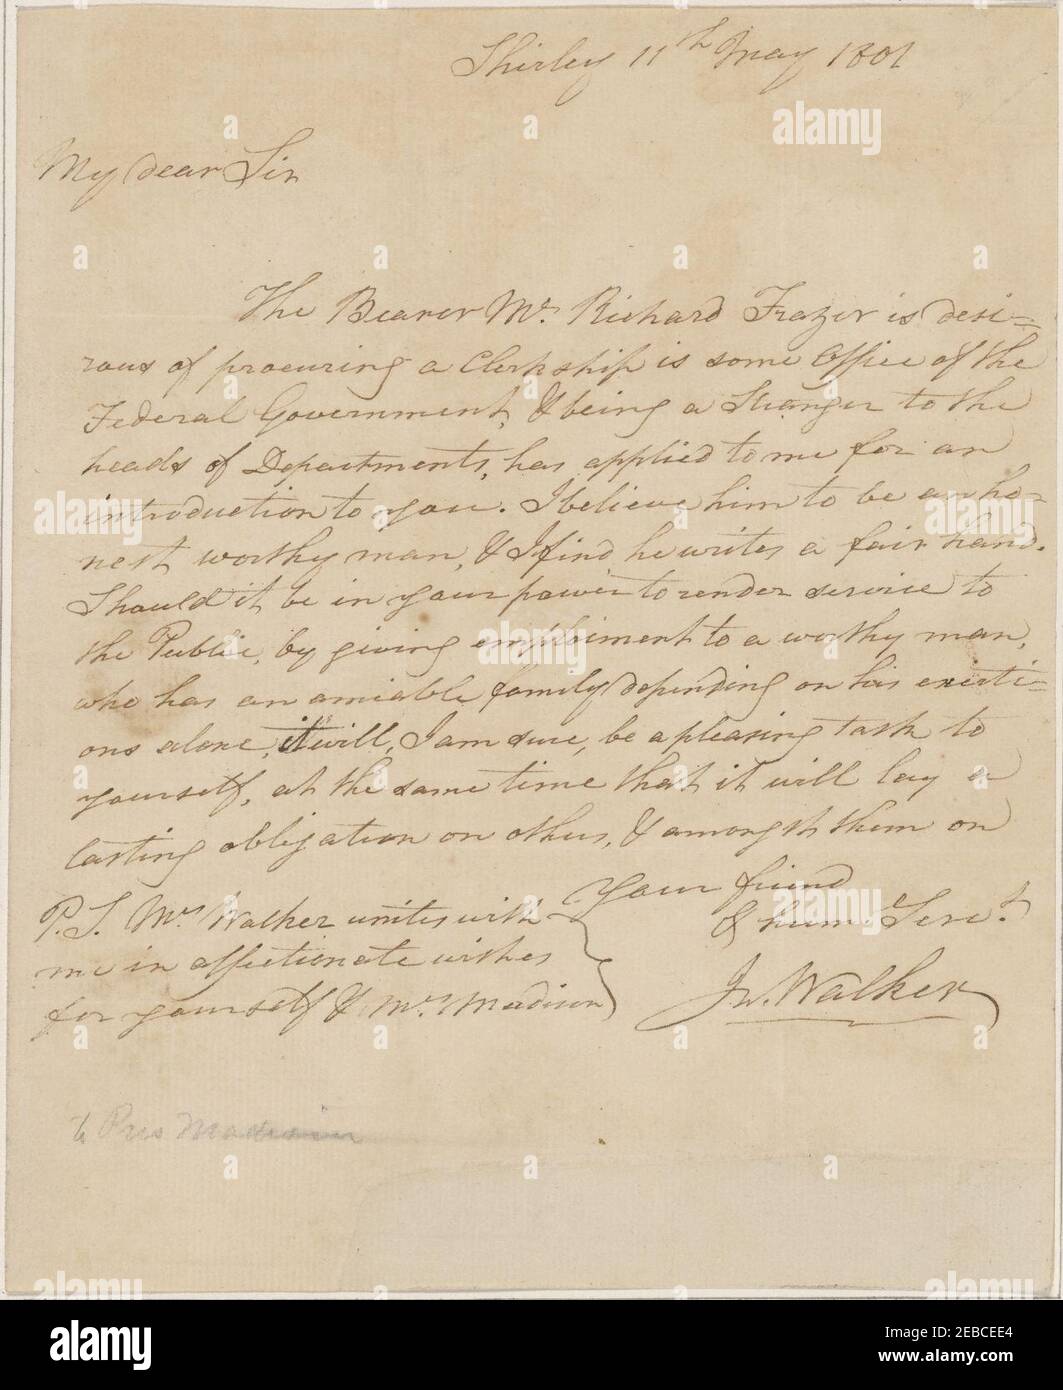 Shirley 11th May 1801
My dear Sir
The Bearer Mr. Richard Frazer is desi=
rous of procuring a Clerkship is some Office of the
Federal Government, & being a Stranger to the
heads of Departments, has applied to me for an
introduction to you. I believe him to be an ho=
nest worthy man, & I find he writes a fair hand.
Should it be in your power to render service to
the Public, by giving emploiment to a worthy man,
who has an amiable family depending on his exerti=
ons alone, it will, I am sure, be a pleasing task to
yourself, at the same time that it will lay a
lasting obligation on others, & amongst them on
Your friend
& hum: Servt
Jn. Walker
P.S. Mrs Walker unites with
me in affectionate wishes
for yourself & Mrs. Madison
to Pres Madison
alamy
Image ID: 2EBCEE4
www.alamy.com